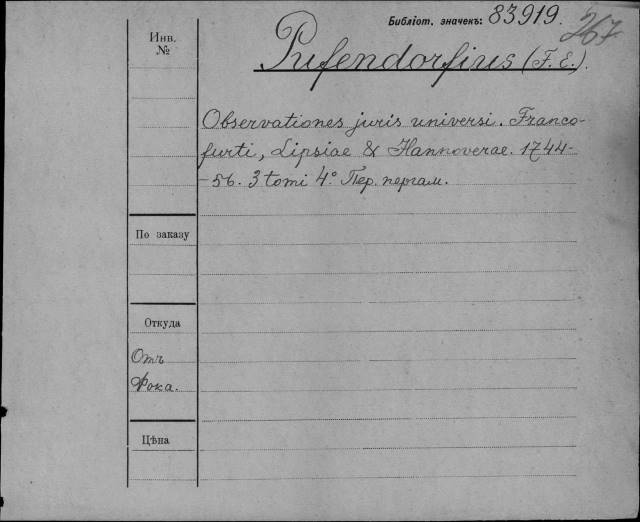 Библіот. значекъ: 83919. 267
Инв.
№
Pufendorfius (F. E.).
Observationes juris universi. Franco-
furti, Lipsiae & Hannoverae. 1744-
-56. 3 tomi 4° Пер. пергам.
По заказу
Откуда
Отъ
Фока.
Цѣна